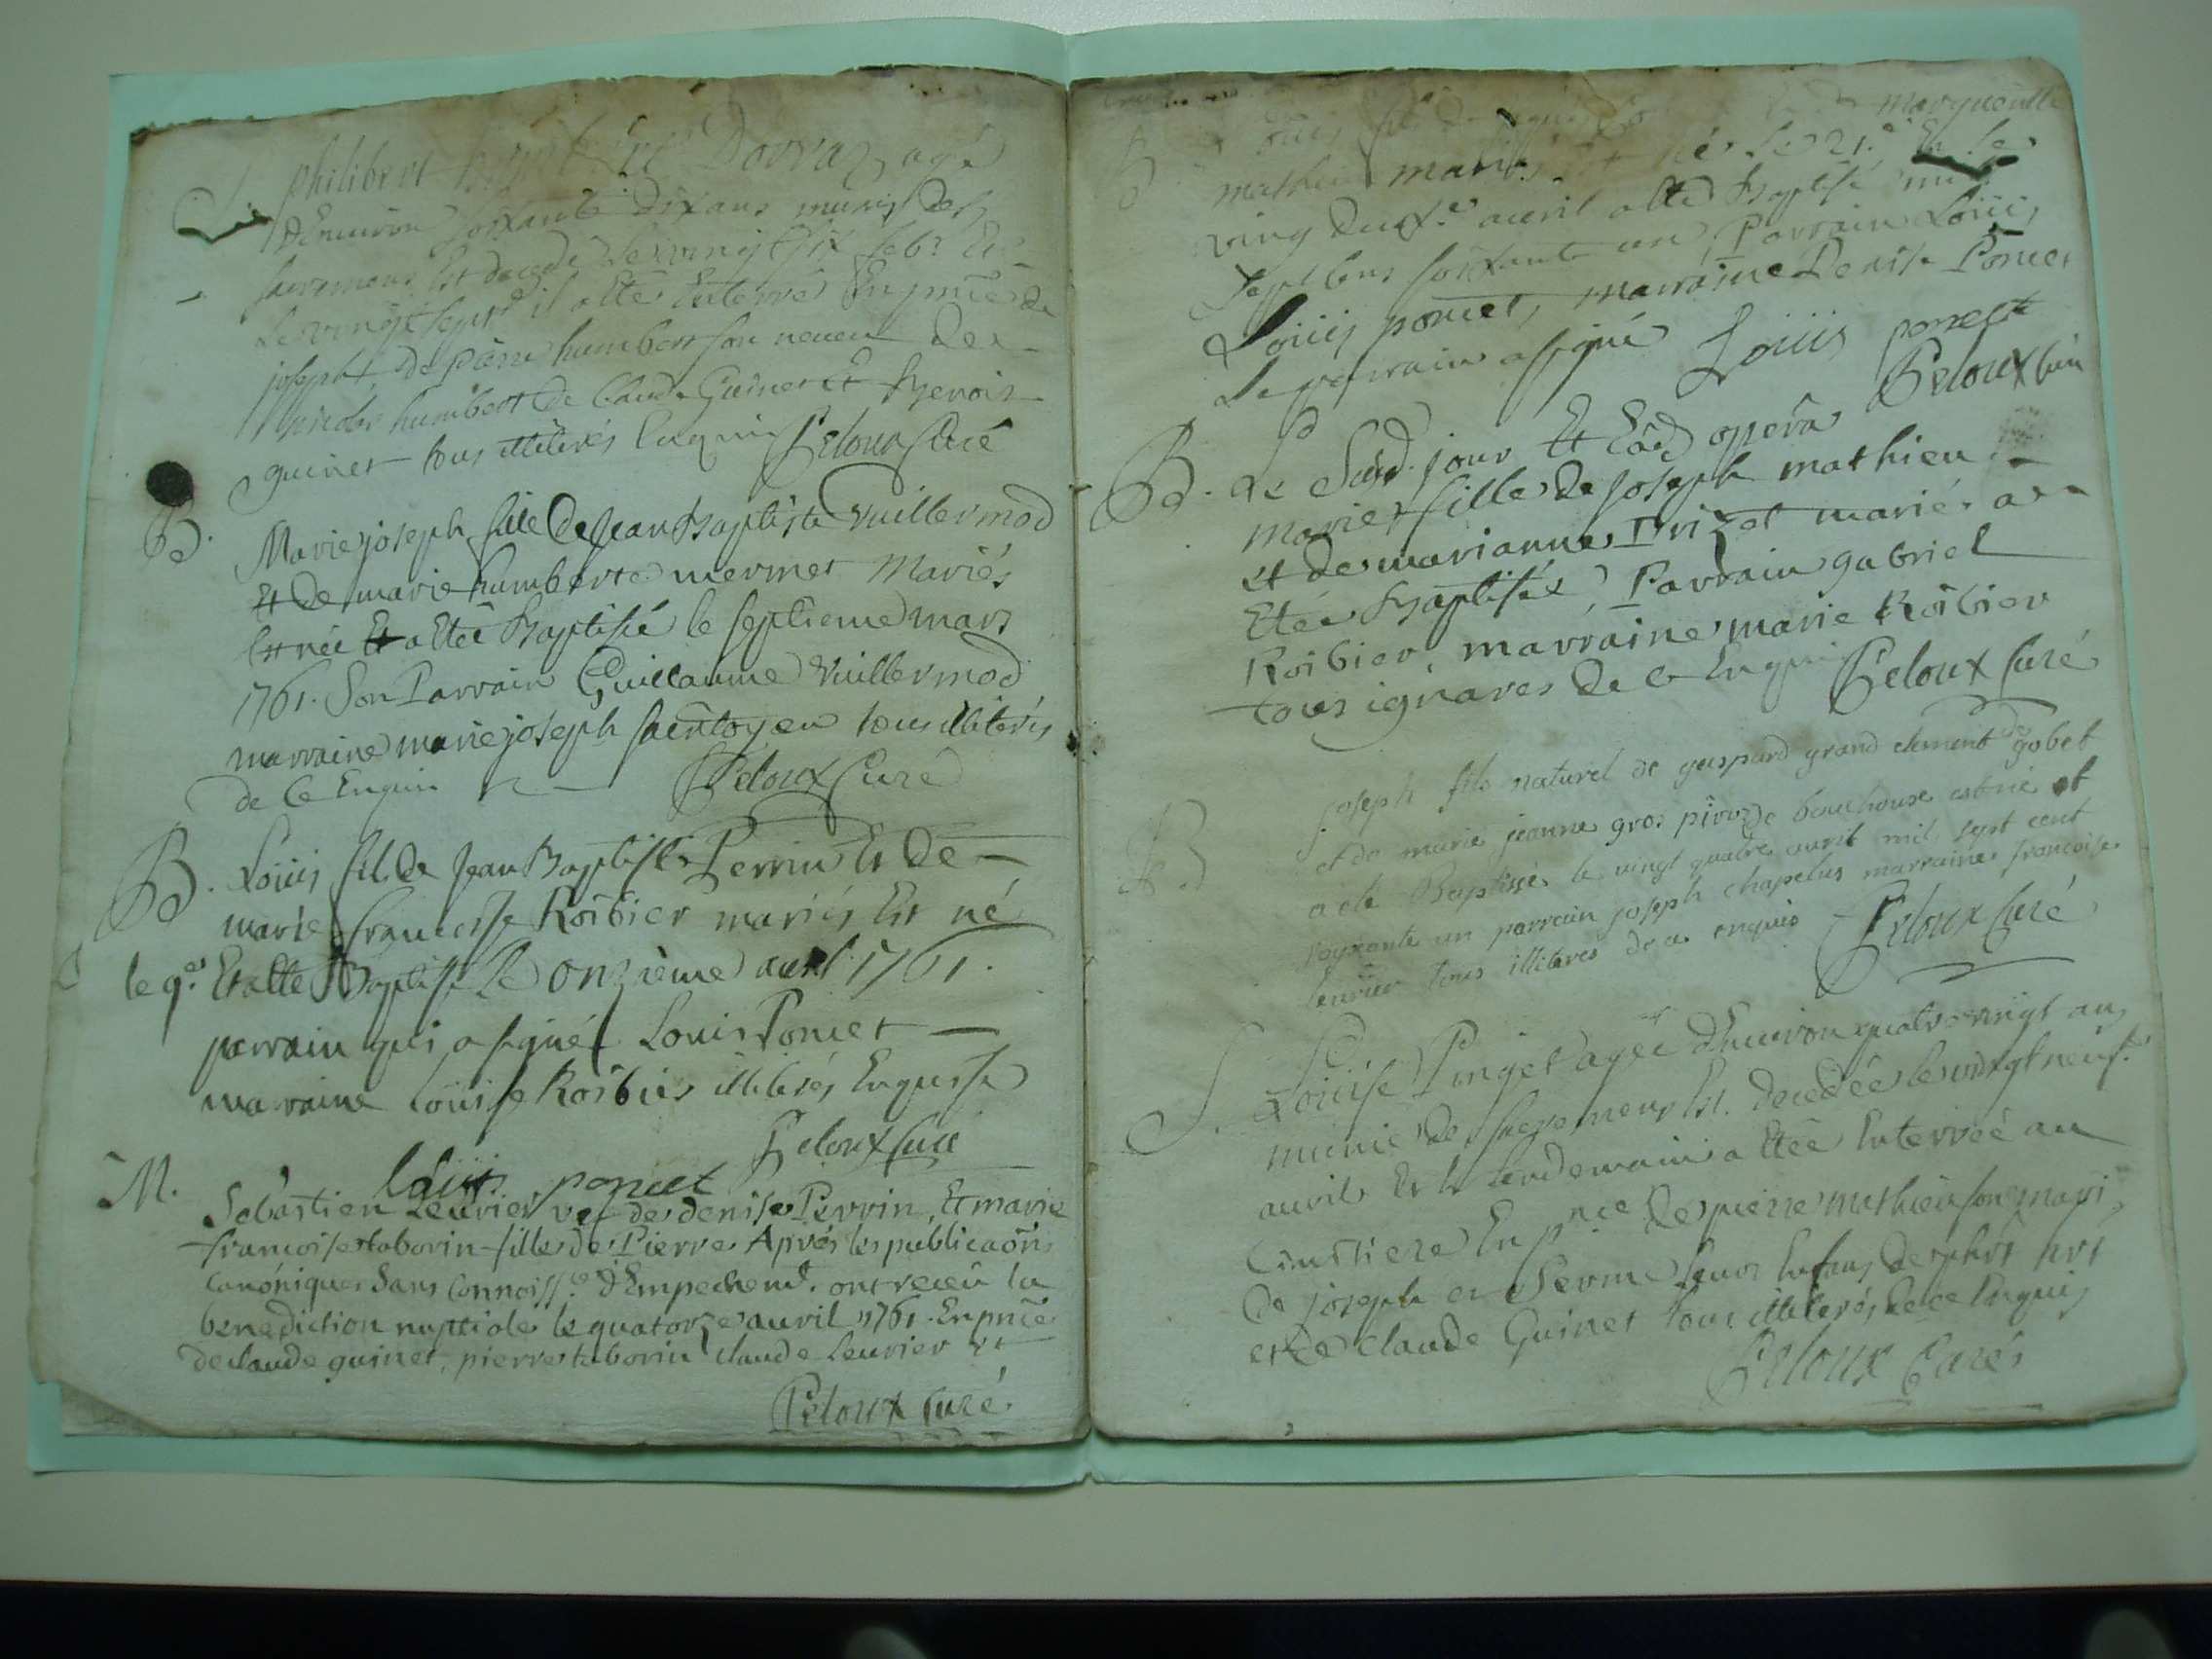 S. philibert Dorvaz agé
D'Environ soixante dix ans munis des
sacremens Est decedé le vingt six feb.r Et
Le vingt sept il a Eté Enterré En pnce de
joseph, de pierre humbert son neveu De
humbert de Claude Guinet Et
guinet tous illiterés Enquis Peloux Curé
B. Marie joseph fille De Jean Baptiste Vuillermod
Et De marie humberte mermet Mariés
Est née Et a Etée Baptisée le septieme mars
1761. Son Parrain Guillaume Vuillermod
marraine marie joseph tous illiterés
de Ce Enquis Peloux Curé
B. Louis fil de Jean Baptiste Perrin Et De
marie francoise Roîbier mariés Est né
le 9.e Et a Eté Baptisé Le onzième avril 1761.
parrain qui a signé Louis Poncet
maraine Louise Roîbier illiterés Enquise
Peloux Curé
louis poncet
M. Sebastien Leuvier vef de denise Perrin, Et marie
francoise taborin fille de Pierre Aprés les publicaõns
canóniques Sans Connoiss.ce d'Empechemt. ont receu la
benediction nuptiale le quatorze avril 1761. En pnce
de claude guinet, pierre taborin claude Leuvier et
Peloux curé.
B. Louis margueritte
mathieu mariés Est né le 21.e Et le
ving deux.e avril a Eté Baptisé mil
Sept Cens soixante un, Parrain Louis
Louis poncet, marraine Denise Poncet
Le parrain a signé Louis poncet
Peloux Curé
B. Le Susd. jour Et
marie fille de Joseph mathieu
et de marianne mariés a
Etée Baptisée, Parrain gabriel
Roîbier, marraine marie Roîbier
tous ignares de ce Enquis Peloux Curé
B. joseph fils naturel de gaspard grand clement de gobet
et de marie jeanne gros piroz de bouchoux est né et
a ete Baptissé le vingt quatre avril mil sept cent
soyxante un parrain joseph chapelus marraine francoise
leuvier tous illiteres de ce enquis Peloux Curé
S. Louise Pinget agée D'Environ quatre vingt ans
munie De sacremens Est decedée le vingt neuf.e
avril Et le Lendemain a Etée Enterrée au
Cimetiere En pnce De pierre mathieu son mari
De joseph et Leurs Enfans
et De Claude Guinet tous illiterés de ce Enquis
Peloux Curé